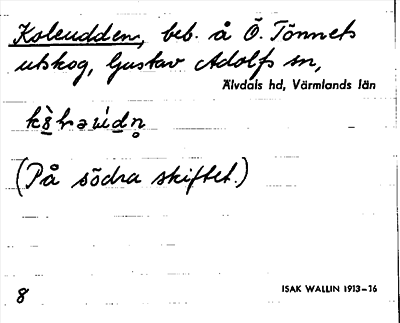 Koleudden, beb. å Ö. Tönnets
utskog, Gustav Adolfs sn,
Älvdals hd, Värmlands län
(På södra skiftet.)
8
ISAK WALLIN 1913–16